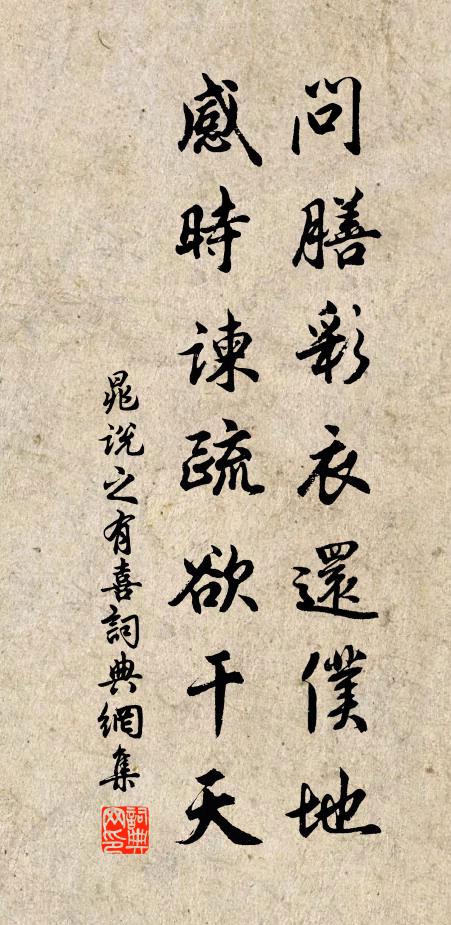 問膳彩衣還僕地
感時諫疏欲干天
晁說之有喜詞典網集
詞典网印